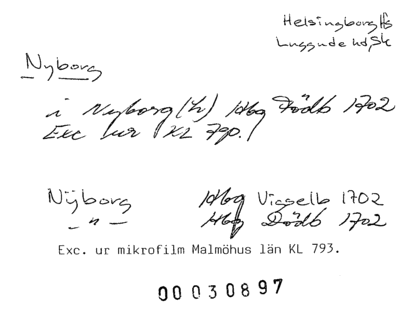 Helsingborg Hfs
Luggude hd, Sk
Nyborg
i Nyborg (h) Hbg Dödb 1702
Exc ur KL 790.
Nÿborg Hbg Vigselb 1702
–"– Hbg Dödb 1702
Exc. ur mikrofilm Malmöhus län KL 793.
00030897